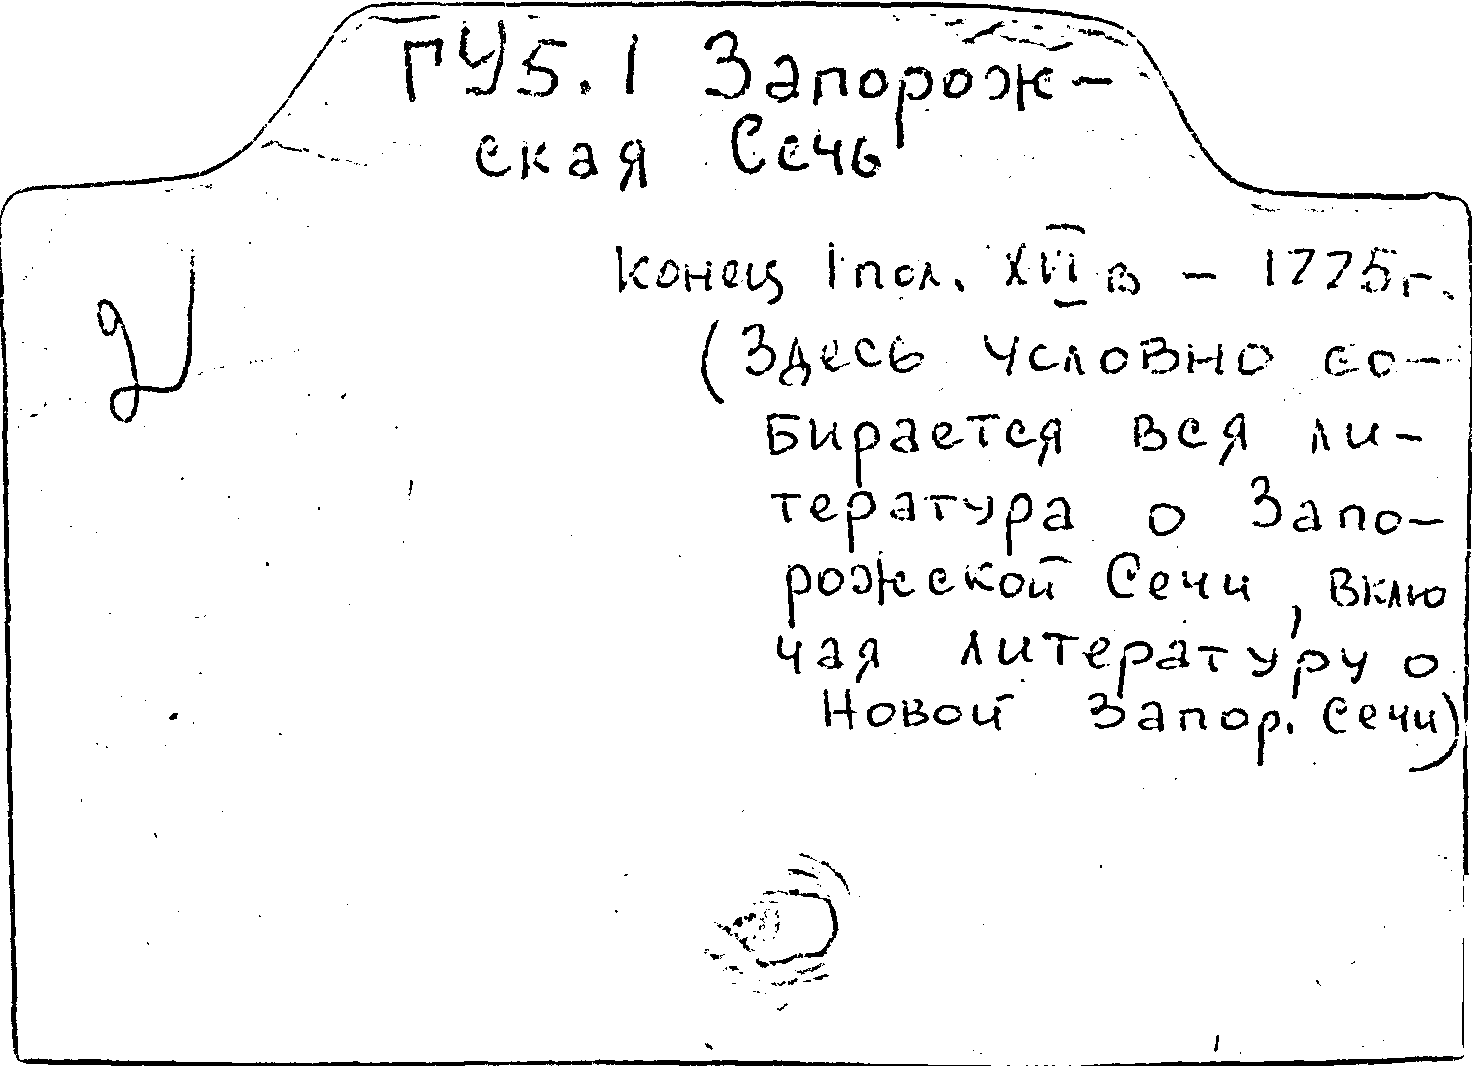 ГУ5.1 Запорож-
ская Сечь
Конец I пол. XVI в - 1775г.
(Здесь условно со-
бирается вся ли-
тература о Запо-
рожской Сечи, вклю
чая литературу о
Новой Запор. Сечи)